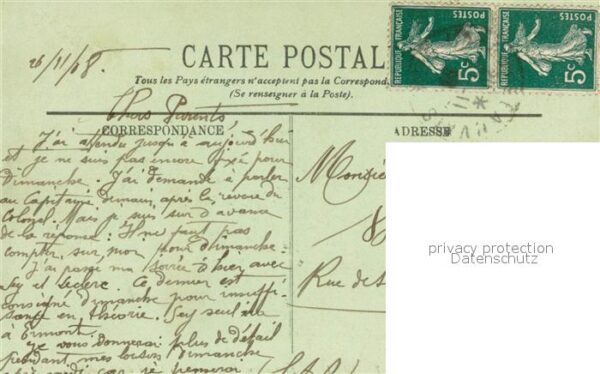 26/11/08.
CARTE POSTAL
Tous les Pays étrangers n'acceptent pas la Correspond
(Se renseigner à la Poste).
REPUBLIQUE FRANÇAISE
POSTES
5c
REPUBLIQUE FRANÇAISE
POSTES
5c
Chers Parents,
CORRESPONDANCE
J'ai attendu jusqu'à aujourd'hui
et je ne suis pas encore fixé pour
Dimanche. J'ai demandé à parler
au Capitaine demain, après la revue du
Colonel. Mais je suis sur d'avance
de la réponse : Il ne faut pas
compter sur moi pour dimanche.
J'ai passé ma soirée d'hier avec
Sey et Leclerc. Ce dernier est
consigné dimanche pour insuffi-
sance en théorie. Sey seul ira
à Ermont.
Je vous donnerai plus de détail
pendant mes loisirs dimanche
ADRESSE
Monsie
Rue de
privacy protection
Datenschutz